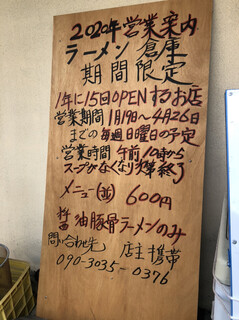 2020年営業案内
ラーメン倉庫
期間限定
1年に15回OPENするお店
営業期間 1月19日〜4月26日
までの毎週日曜日の予定
営業時間 午前10時から
スープがなくなり次第終了
メニュー(並) 600円
醤油豚骨ラーメンのみ
問い合わせ先 店主携帯
090-3035-0376